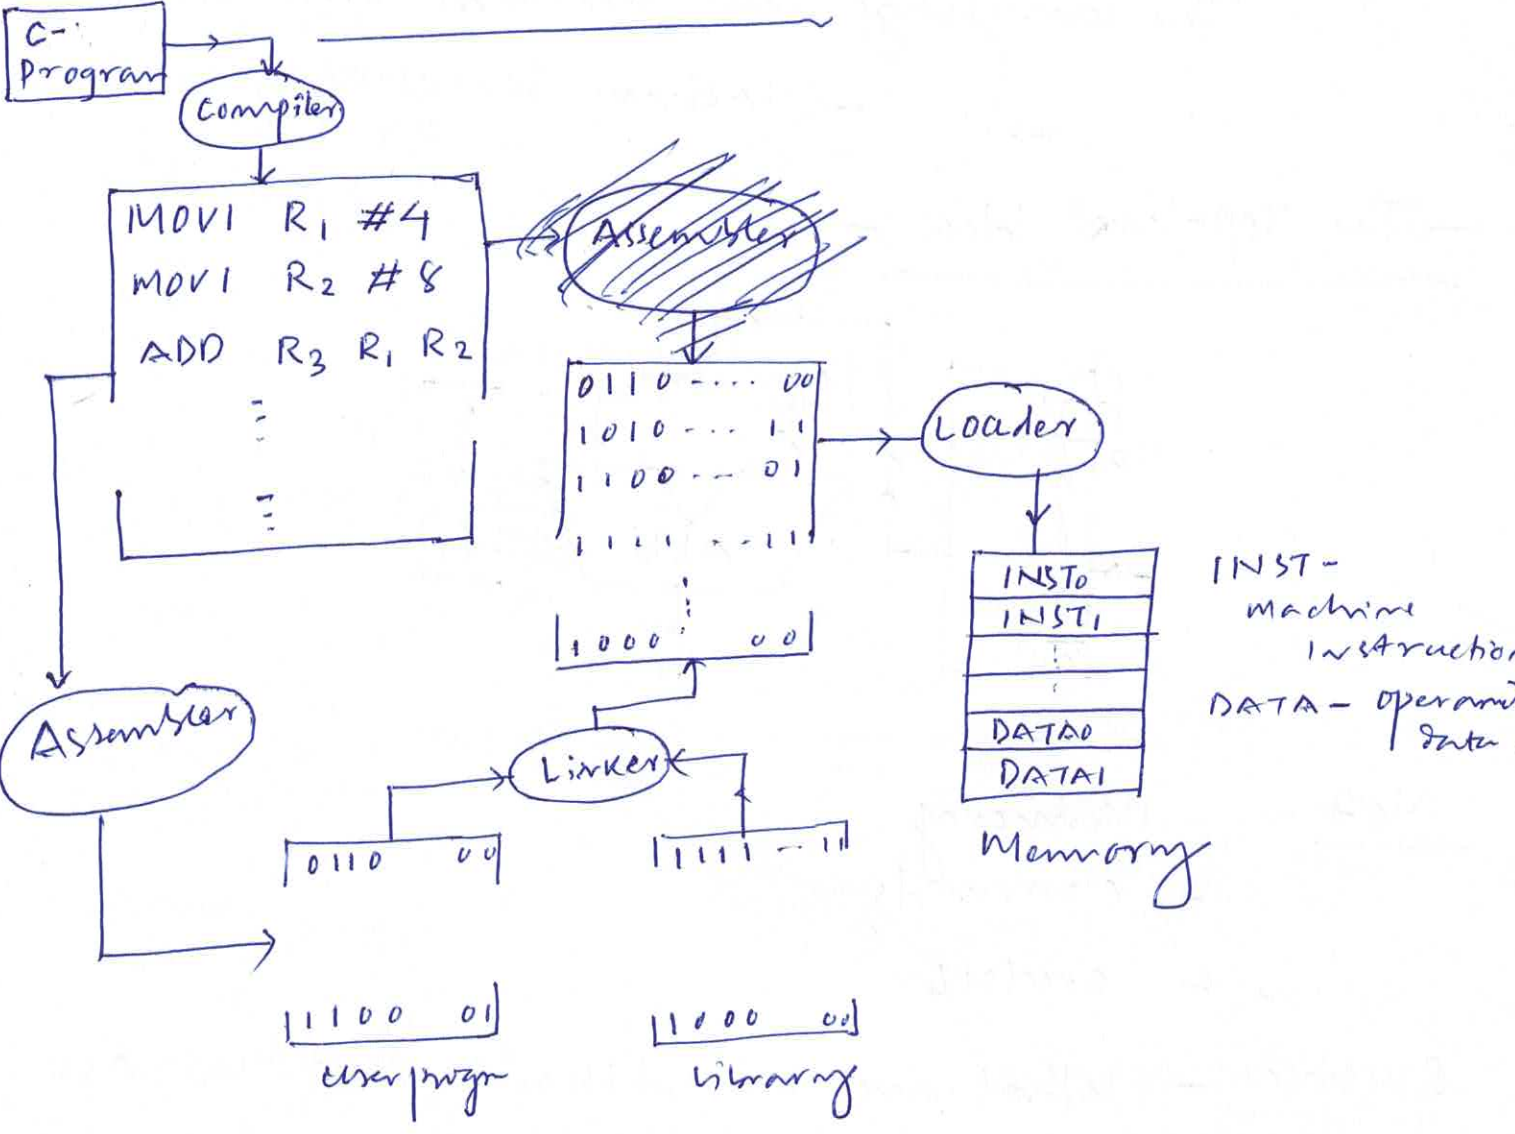 C-
Program
Compiler
MOVI R1 #4
MOVI R2 #8
ADD R3 R1 R2
Assembler
0110 -.... 00
1010 --.. 11
1100 -.-- 01
1111 --111
1000 00
Loader
INST0
INST1
DATA0
DATA1
Memory
INST-
Machine
Instruction
DATA - operand
data
Assembler
Linker
0110 00
1100 01
User progr
1111 -- 11
1000 00
Library